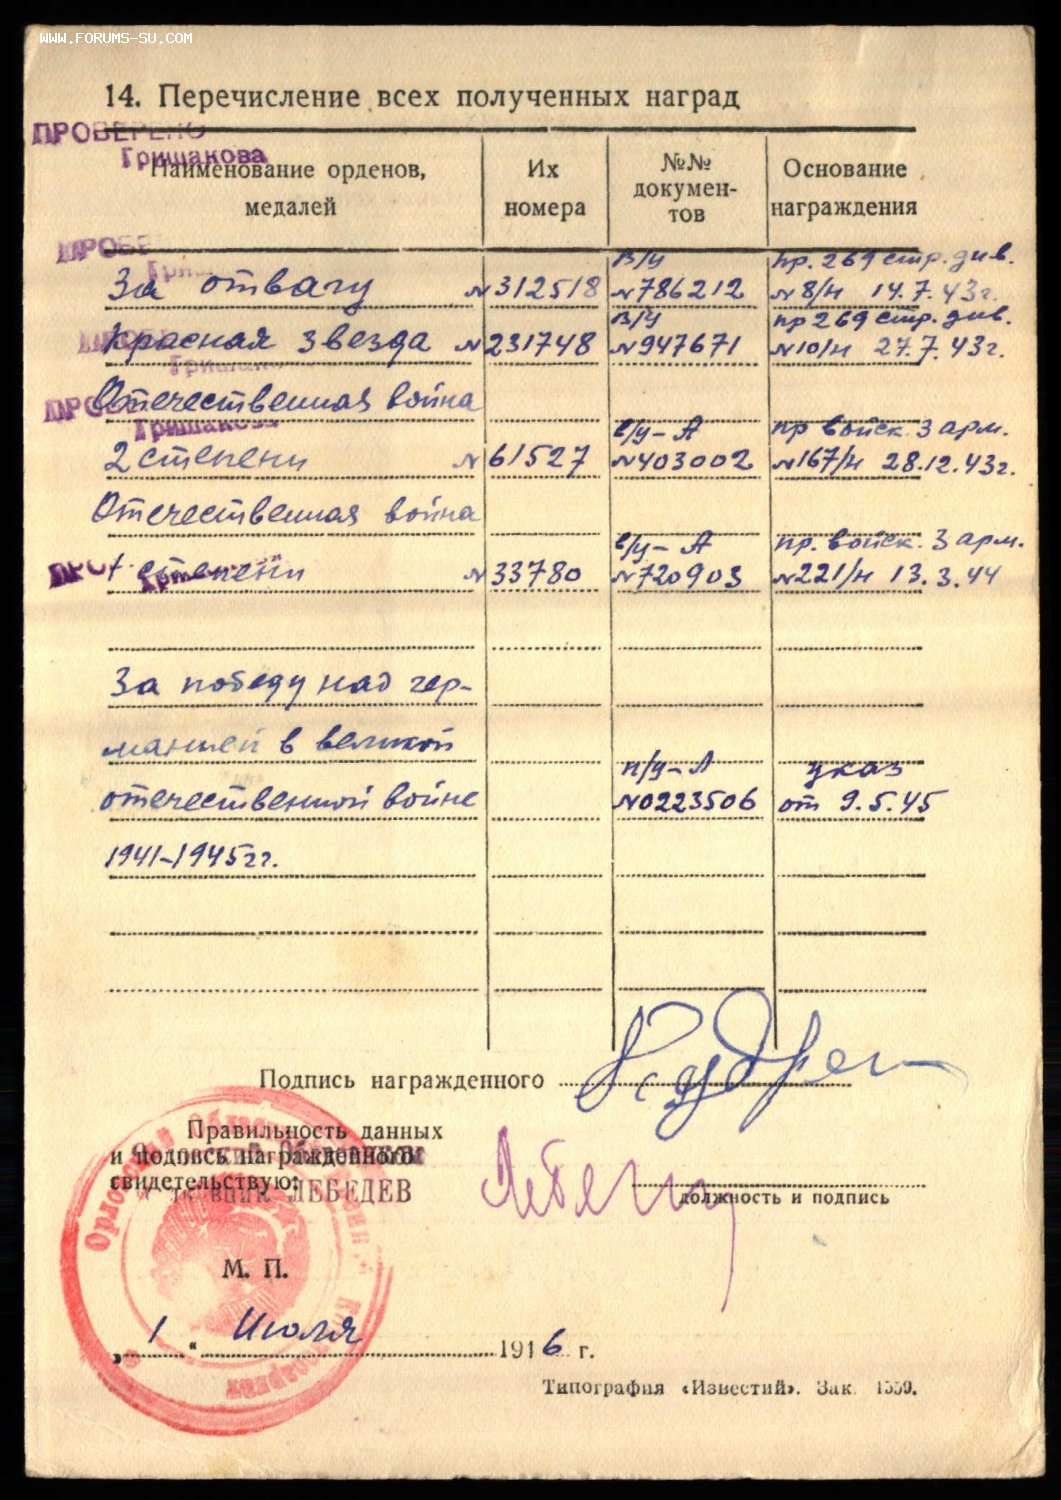 WWW.FORUMS-SU.COM
14. Перечисление всех полученных наград
ПРОВЕРЕНО
Гришакова
Наименование орденов, медалей
Их номера
№№ докумен-тов
Основание награждения
За отвагу №312518 в/у №786212 пр. 269 стр. див. №8/н 14.7.43г.
Красная звезда №231748 в/у №947671 пр 269 стр. див. №10/н 27.7.43г.
Отечественная война
2 степени №61527 в/у-А №403002 пр войск. 3 арм. №167/н 28.12.43г.
Отечественная война
1 степени №33780 в/у-А №720903 пр. войск. 3 арм. №221/н 13.3.44
За победу над гер-
манией в великой
отечественной войне п/у-А №0223506 указ от 9.5.45
1941-1945гг.
Подпись награжденного
Правильность данных
и подпись награжденного
свидетельствую:
ЛЕБЕДЕВ
должность и подпись
М. П.
„1" Июля 1946 г.
Типография «Известий». Зак. 1559.